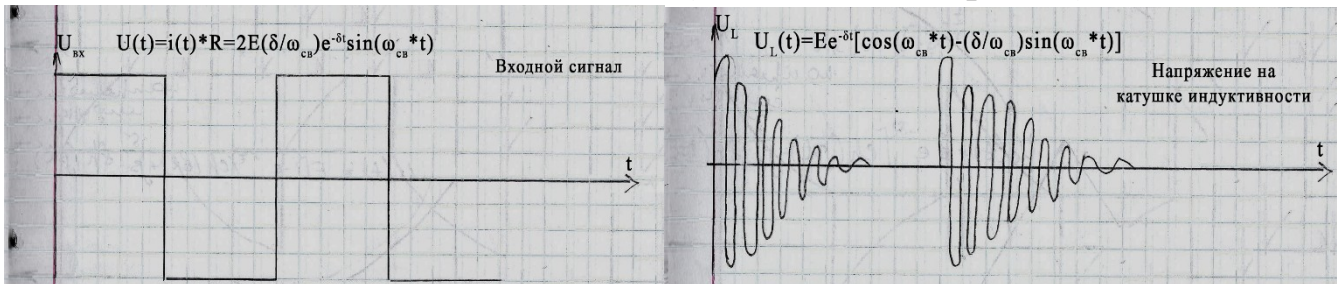 U_вх
U(t)=i(t)*R=2E(δ/ω_св)e^-δt sin(ω_св*t)
Входной сигнал
t
U_L
U_L(t)=Ee^-δt[cos(ω_св*t)-(δ/ω_св)sin(ω_св*t)]
Напряжение на
катушке индуктивности
t